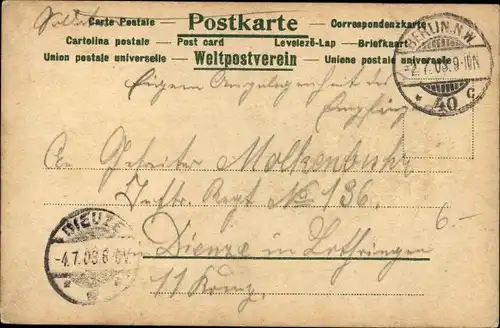 Carte Postale Postkarte Correspondenzkarte
Cartolina postale – Post card – Levelező-Lap – Briefkaart
Union postale universelle – Weltpostverein – Unione postale universale
BERLIN. N.W.
-2.7.03.9-10N
* 40 c
Eigene Angelegenheit des
Empfängers
An Gefreiter Molkenbuhr
Inftr. Regt No 136.
6.-
Dieuze in Lothringen
11 Komp.
DIEUZE
-4.7.03.8-9V
* * *